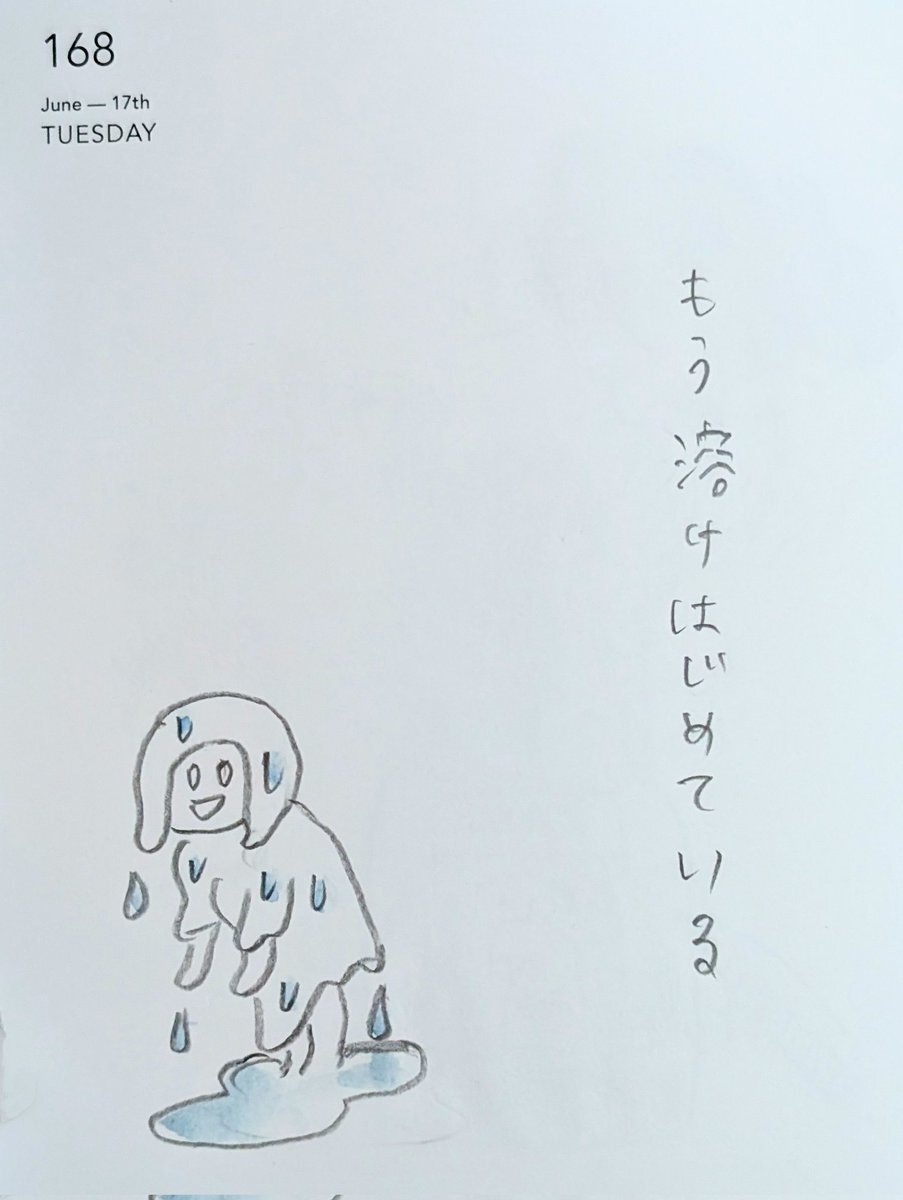 168
June — 17th
TUESDAY
もう溶けはじめている